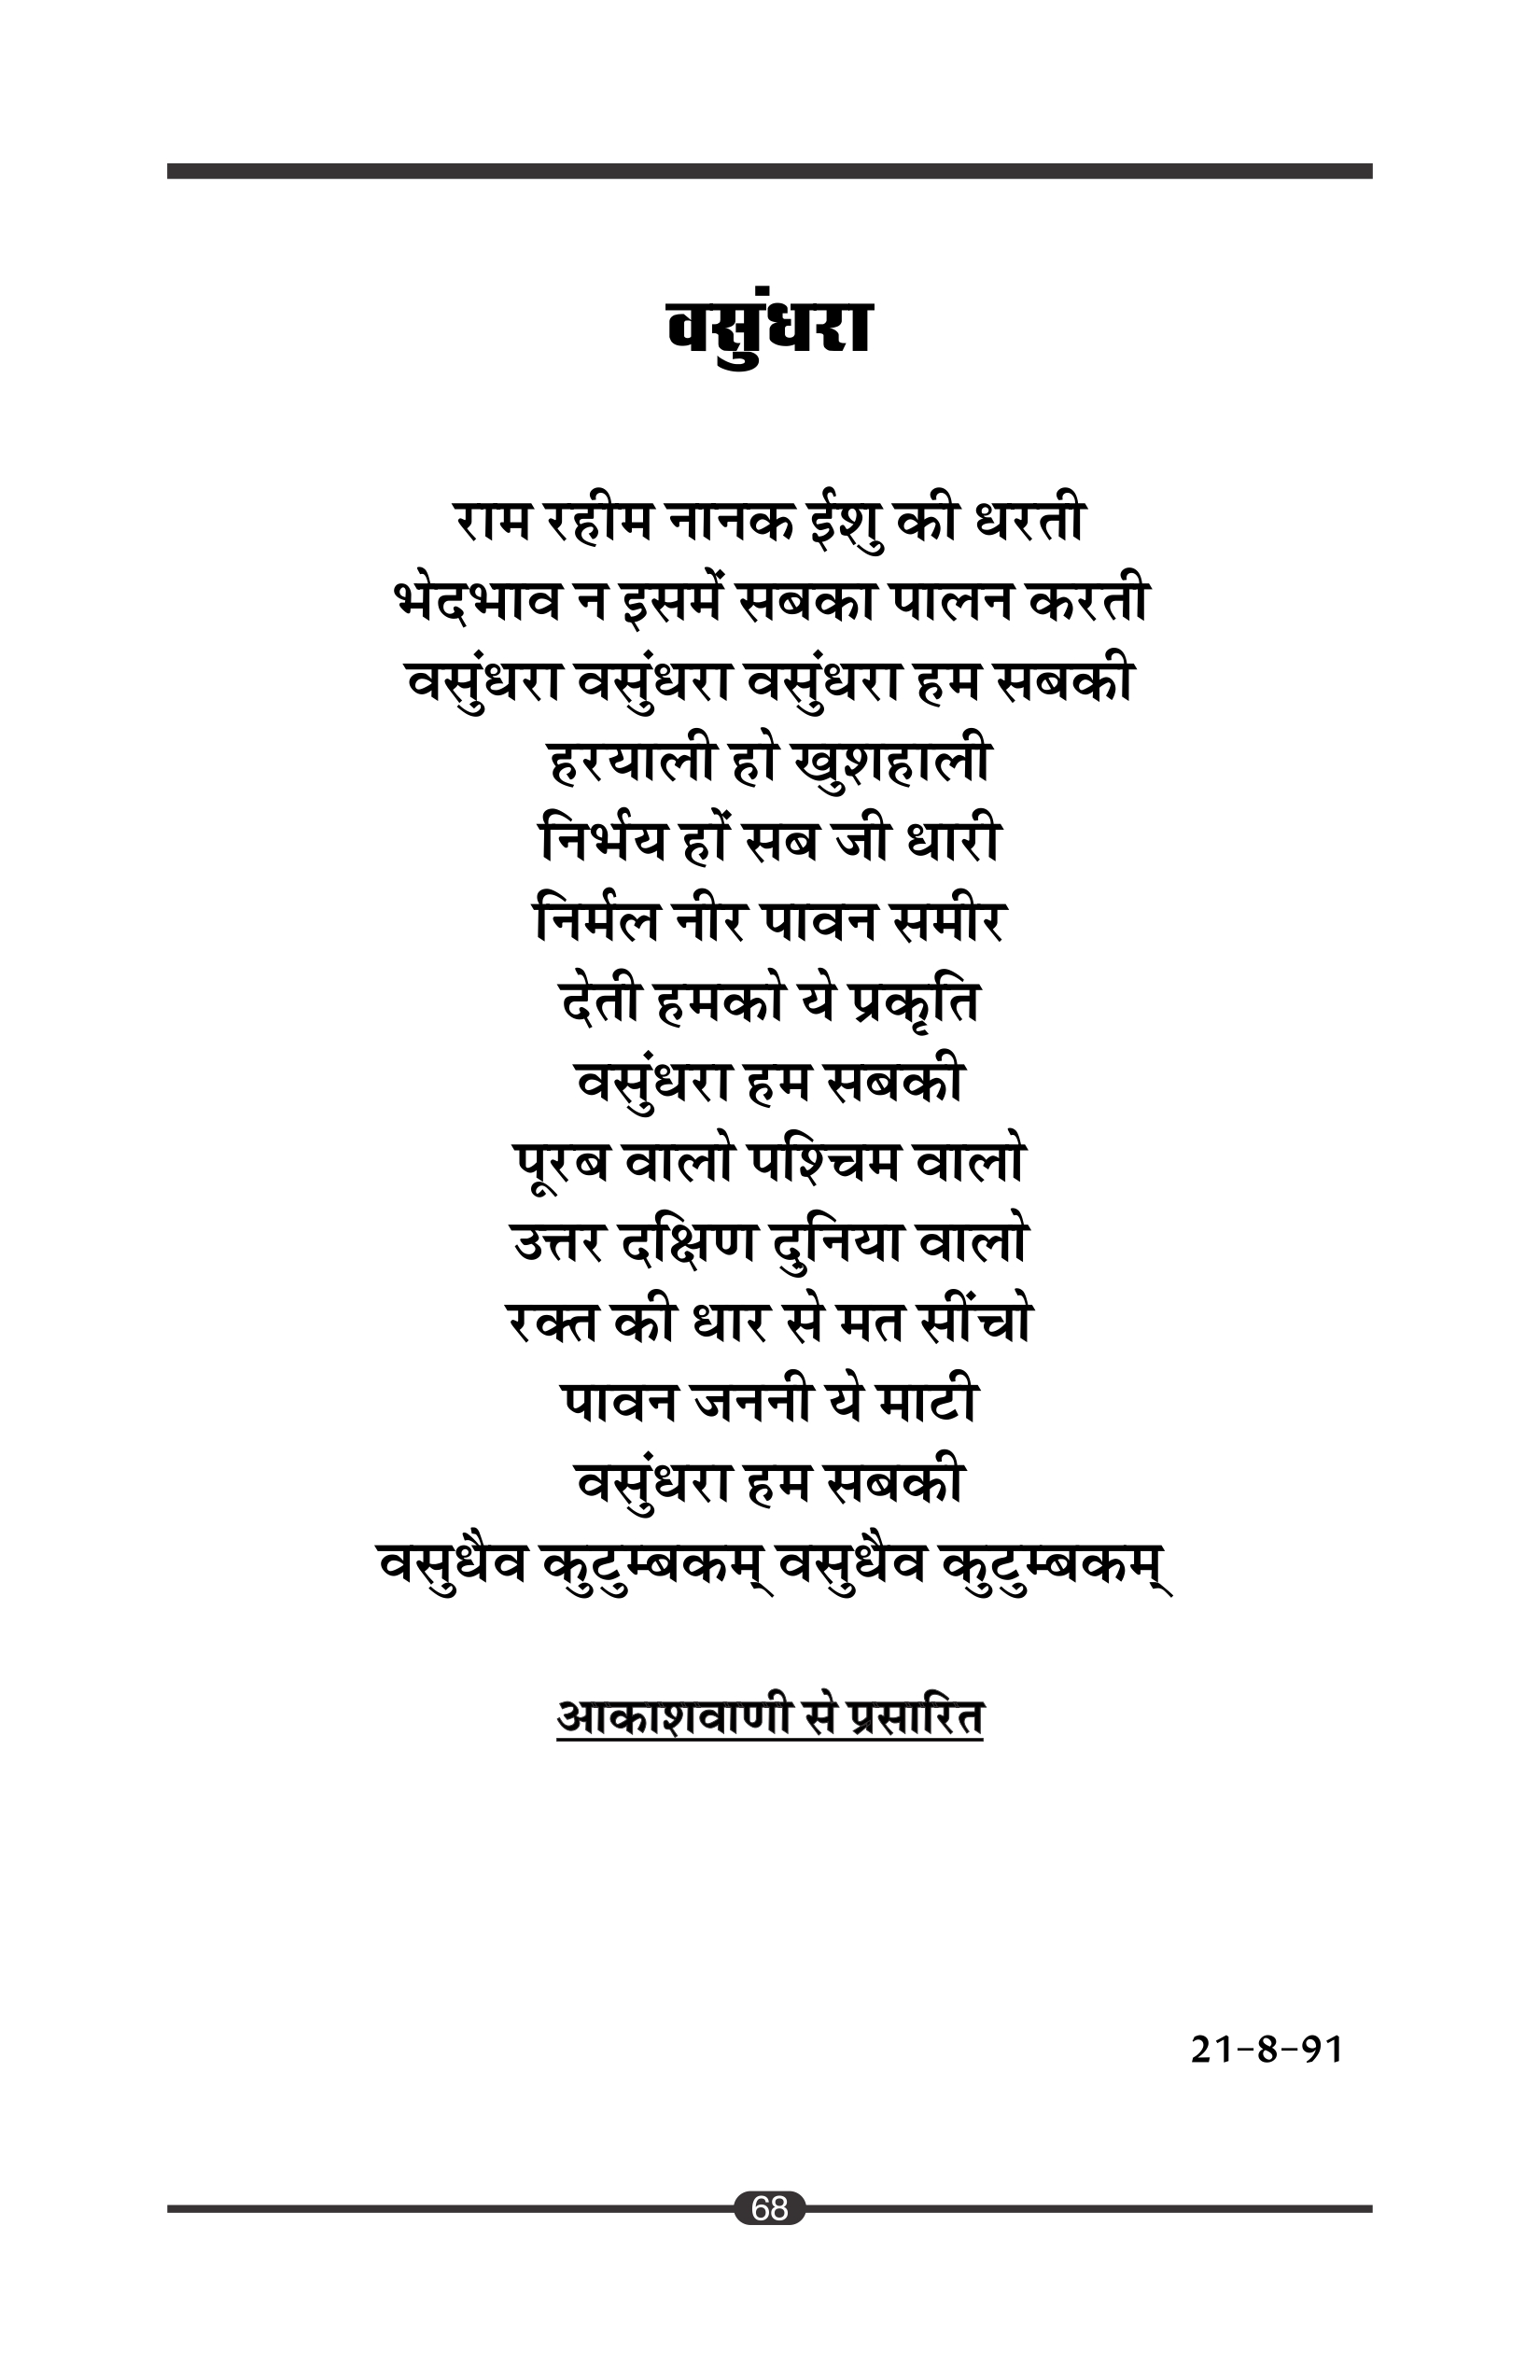 वसुंधरा
राम रहीम नानक ईशु की धरती
भेद्भाव न इसमें सबका पालन करती
वसुंधरा वसुंधरा वसुंधरा हम सबकी
हरयाली हो खुशहाली
निर्भय हों सब जी धारी
निर्मल नीर पावन समीर
देती हमको ये प्रकृति
वसुंधरा हम सबकी
पूरब वालो पश्चिम वालो
उत्तर दक्षिण दुनिया वालो
रक्त की धार से मत सींचो
पावन जननी ये माटी
वसुंधरा हम सबकी
वसुधैव कुटुम्बकम् वसुधैव कुटुम्बकम्
आकाशवाणी से प्रसारित
21-8-91
68